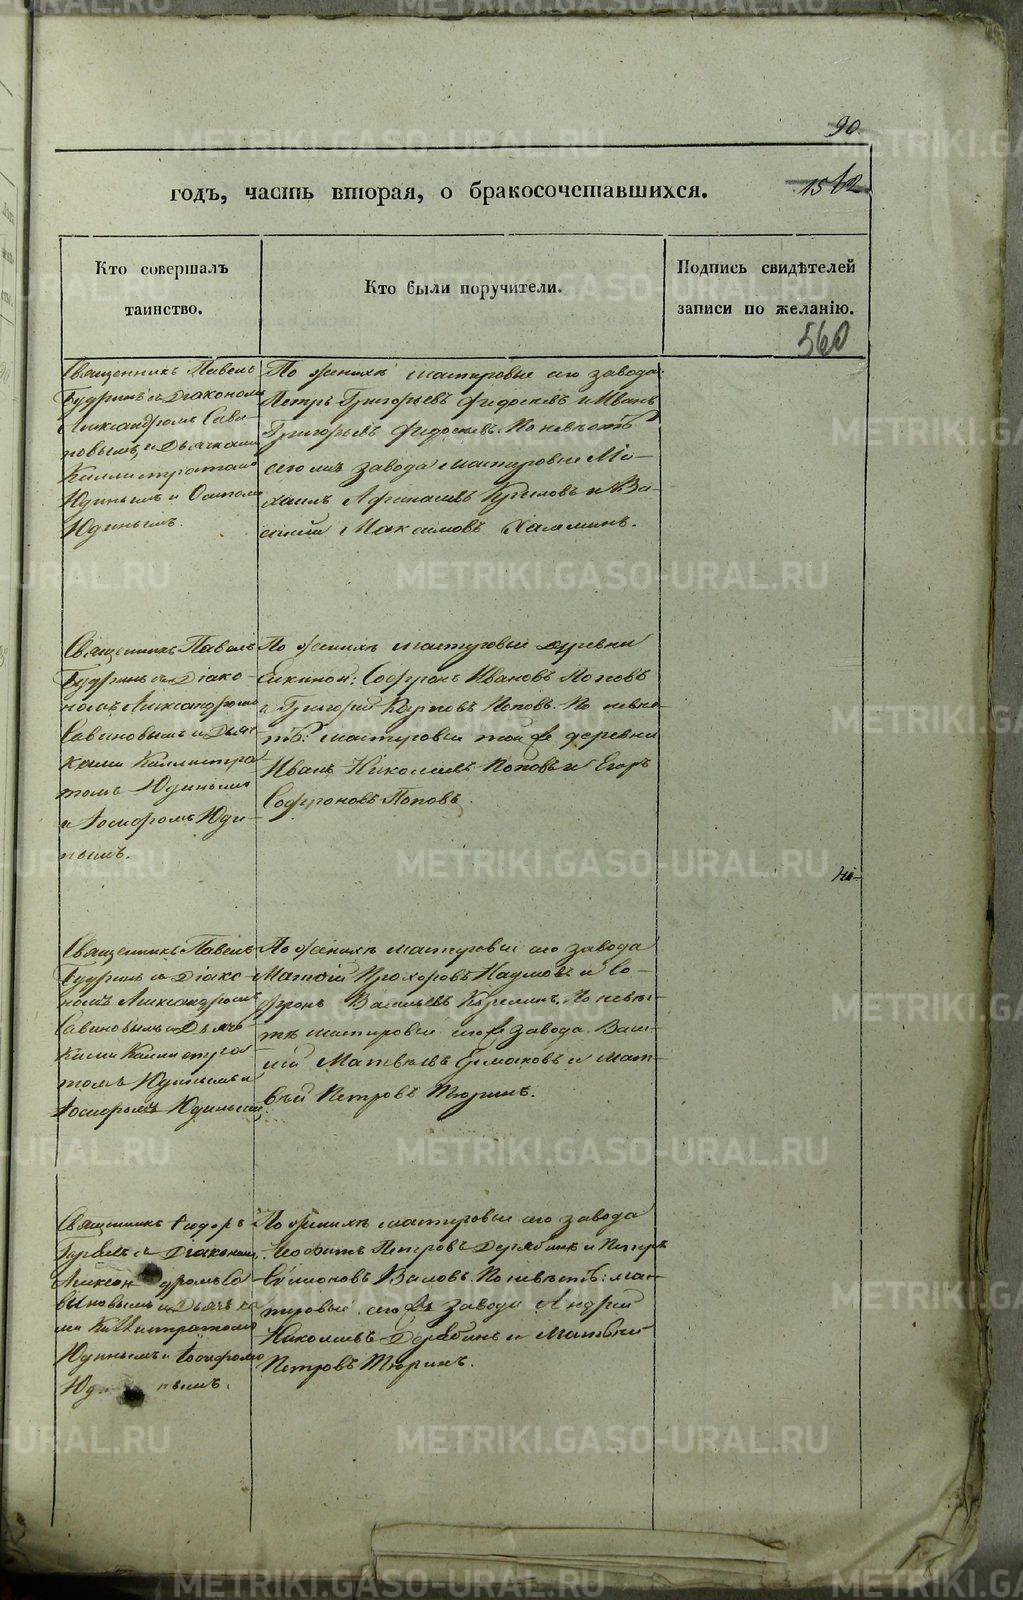 90
годъ, часть вторая, о бракосочетавшихся.
1512
Кто совершалъ
таинство.
Кто были поручители.
Подпись свидѣтелей
записи по желанію.
560
Священникъ Павелъ
Будринъ съ Діакономъ
Александромъ Сави-
новымъ и Дьячками
Каллистратомъ
Юдинымъ и Осипомъ
Юдинымъ.
По женихѣ мастеровые сего завода:
Петръ Григорьевъ Федосѣевъ и Иванъ
Григорьевъ Федосѣевъ. По невѣстѣ
завода мастеровые Ми-
хаилъ Афанасьевъ и Ва-
силій Максимовъ Халяминъ.
Священникъ Павелъ
Будринъ съ Діако-
номъ Александромъ
Савиновымъ и Дьяч-
ками Каллистра-
томъ Юдинымъ
и Іосифомъ Юди-
нымъ.
По женихѣ мастеровые деревни
Софронъ Ивановъ Поповъ
и Григорій Карповъ Поповъ. По невѣс-
тѣ: мастеровые той же деревни
Иванъ Николаевъ Поповъ и Егоръ
Софроновъ Поповъ.
Священникъ Павелъ
Будринъ съ Діако-
номъ Александромъ
Савиновымъ и Дьяч-
ками Каллистра-
томъ Юдинымъ и
Іосифомъ Юдинымъ
По женихѣ мастеровые сего завода
Матвій Прохоровъ Наумовъ и Со-
фронъ Васильевъ По невѣс-
тѣ мастеровые сего же завода. Васи-
лій Матвѣевъ Ермаковъ и Мат-
вѣй Петровъ Тюринъ.
Священникъ Ѳеодоръ
съ Діакономъ
Александромъ Са-
виновымъ и Дьячка-
ми Каллистратомъ
Юдинымъ и Іосифомъ
Юдинымъ.
По женихѣ мастеровые сего завода
Петровъ Дерябинъ и Петръ
Валовъ. По невѣстѣ: мас-
теровые сего же завода Андрей
Николаевъ Дерябинъ и Матвѣй
Петровъ Тюринъ.
METRIKI.GASO-URAL.RU